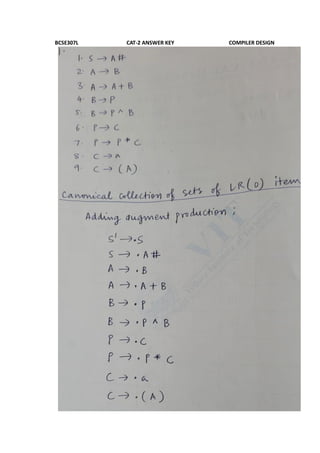 BCSE307L CAT-2 ANSWER KEY COMPILER DESIGN
1.
1. S → A#
2. A → B
3. A → A + B
4. B → P
5. B → P ^ B
6. P → C
7. P → P * C
8. C → a
9. C → (A)
Canonical collection of sets of LR(0) item
Adding augment production ;
S' → .S
S → . A#
A → . B
A → . A + B
B → . P
B → . P ^ B
P → . C
P → . P * C
C → . a
C → . (A)
VIT